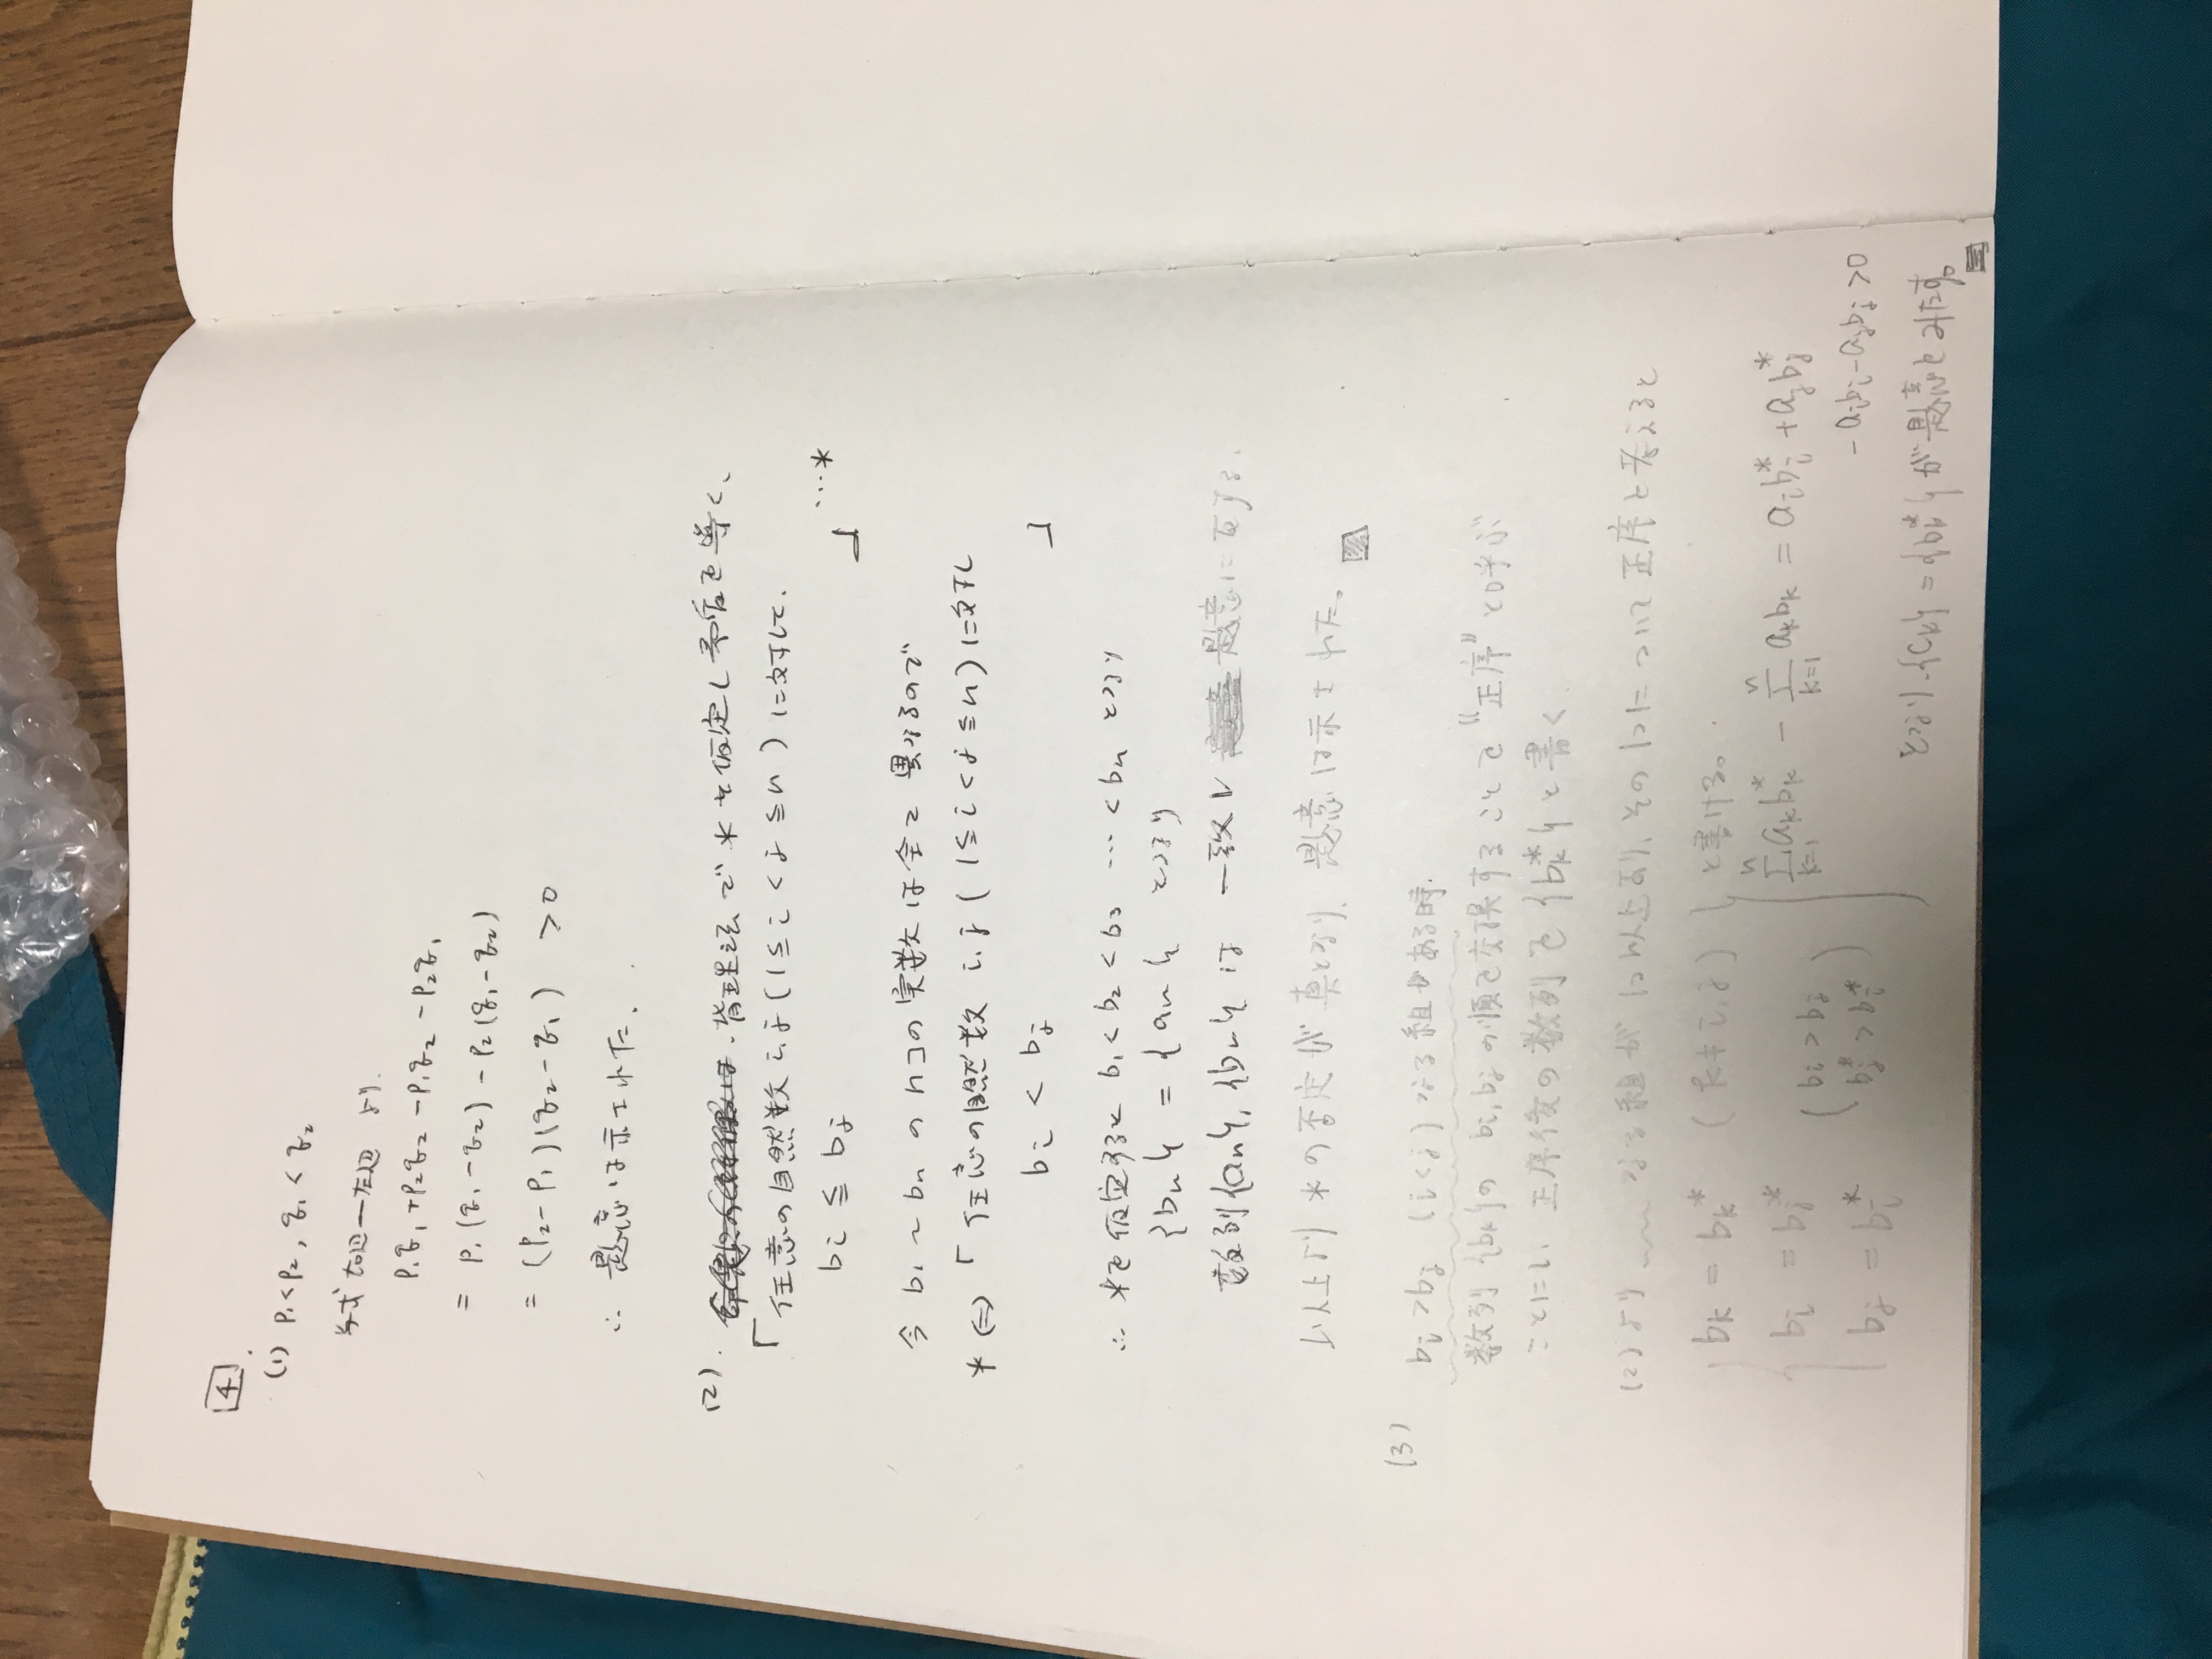 4.
(1) P₁<P₂, q₁<q₂
与式 右辺-左辺 より.
P₁q₁+P₂q₂-P₁q₂-P₂q₁
= P₁(q₁-q₂)-P₂(q₁-q₂)
= (P₂-P₁)(q₂-q₁) >0
∴ 題意は示された.
(2). 背理法で*を仮定し矛盾を導く、
「任意の自然数 i,j (1≦i<j≦n) に対して、
bi ≦ bj 」 …*
今 b₁~bn の n コの実数は全て異なるので
* ⇔ 「任意の自然数 i,j (1≦i<j≦n) に対し
bi < bj 」
∴ *を仮定すると b₁<b₂<b₃ … <bn となり
{bn} = {an} となり
数列{an}, {bn} は 一致し 題意に反する.
以上より *の否定が真となり, 題意は示された。
(3) bi>bj (i<j) なる組がある時.
数列{bk}の bi, bj の順を交換することを"正序"と呼ぶ
ことにし, 正序後の数列を{bk*}と書く.
(2)より なる組が1つ以上あり、その1つについて正序を考えると
bk = bk* (k≠i,j) と書ける。
bi = bj* (bi>bj)
bj = bi* (bj*>bi*)
Σ[k=1,n] akbk* - Σ[k=1,n] akbk = aibi*+ajbj*
-aibi-ajbj>0
となり, {Ck} = {bk*}が題意をみたす。